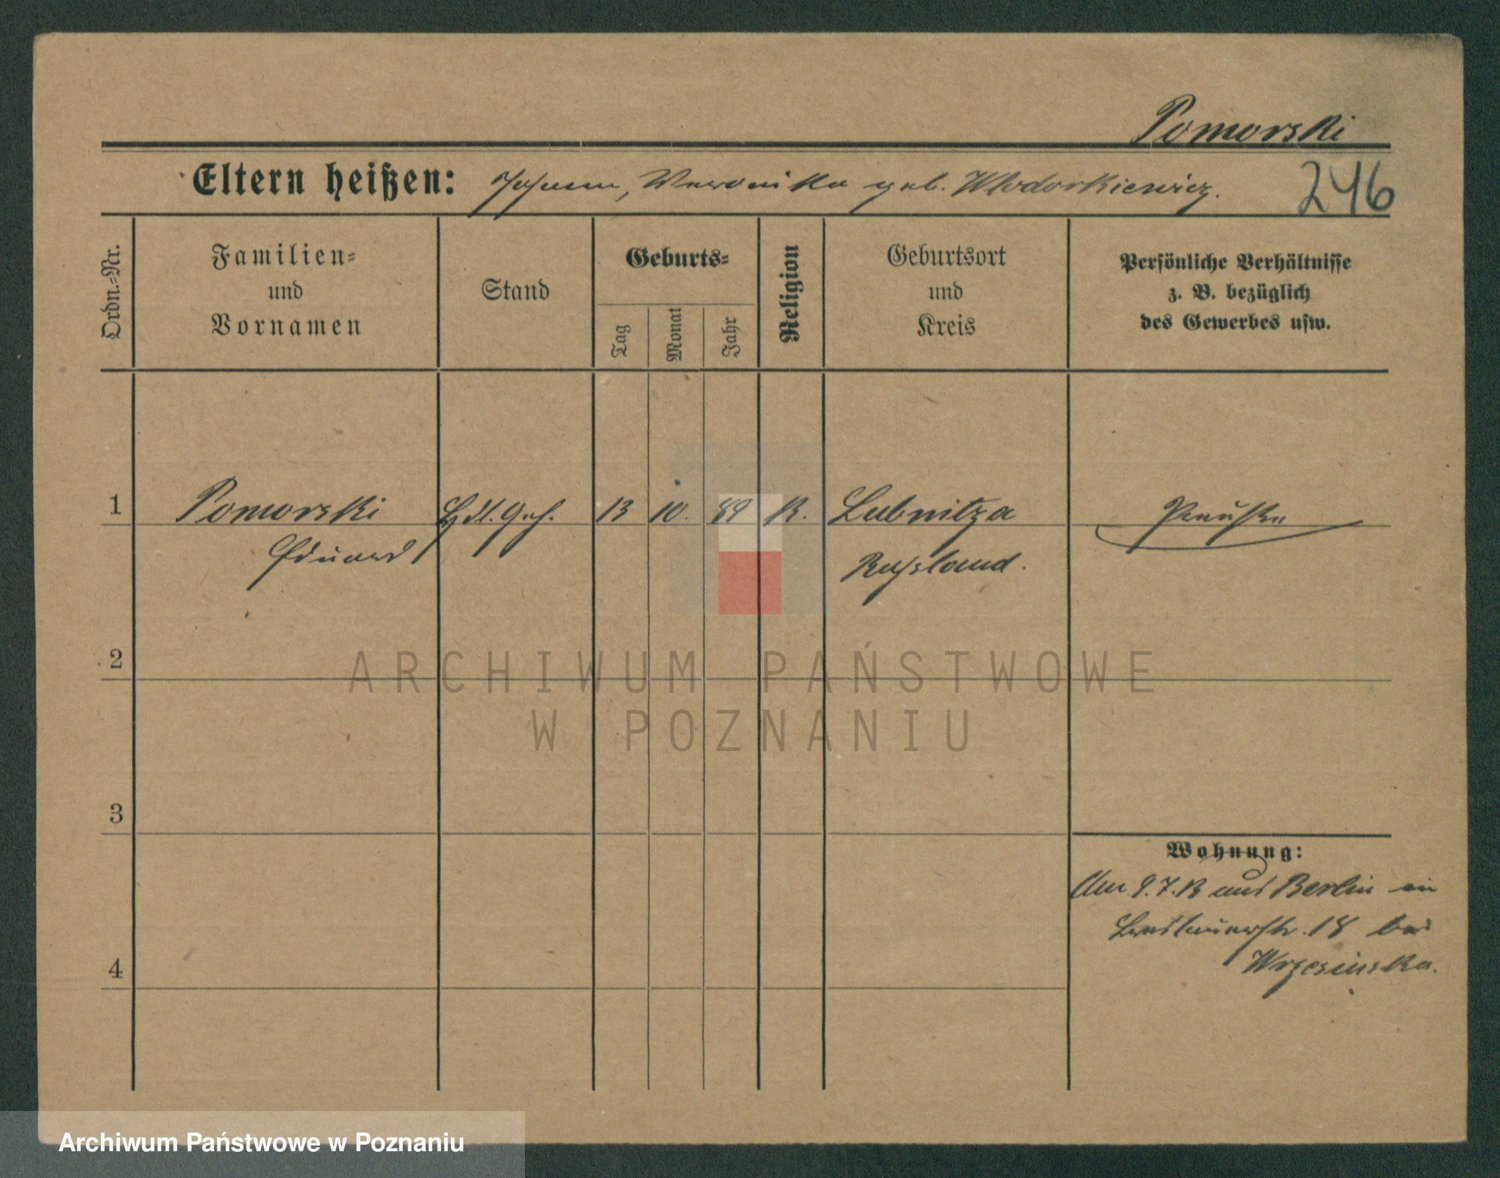 Pomorski
Eltern heißen: Johann, Veronika geb. Wlodarkiewicz.
246
Ordn.-Nr.
Familien-
und
Vornamen
Stand
Geburts-
Tag
Monat
Jahr
Religion
Geburtsort
und
Kreis
Persönliche Verhältnisse
z. B. bezüglich
des Gewerbes usw.
1 Pomorski Hdl. Geh. 13 10. 89 K. Lubnitza Preuße
Eduard Russland.
2
ARCHIWUM PAŃSTWOWE
W POZNANIU
3
Wohnung:
Am 9.7.13 aus Berlin in
18 bei
4
Wrzesinska.
Archiwum Państwowe w Poznaniu